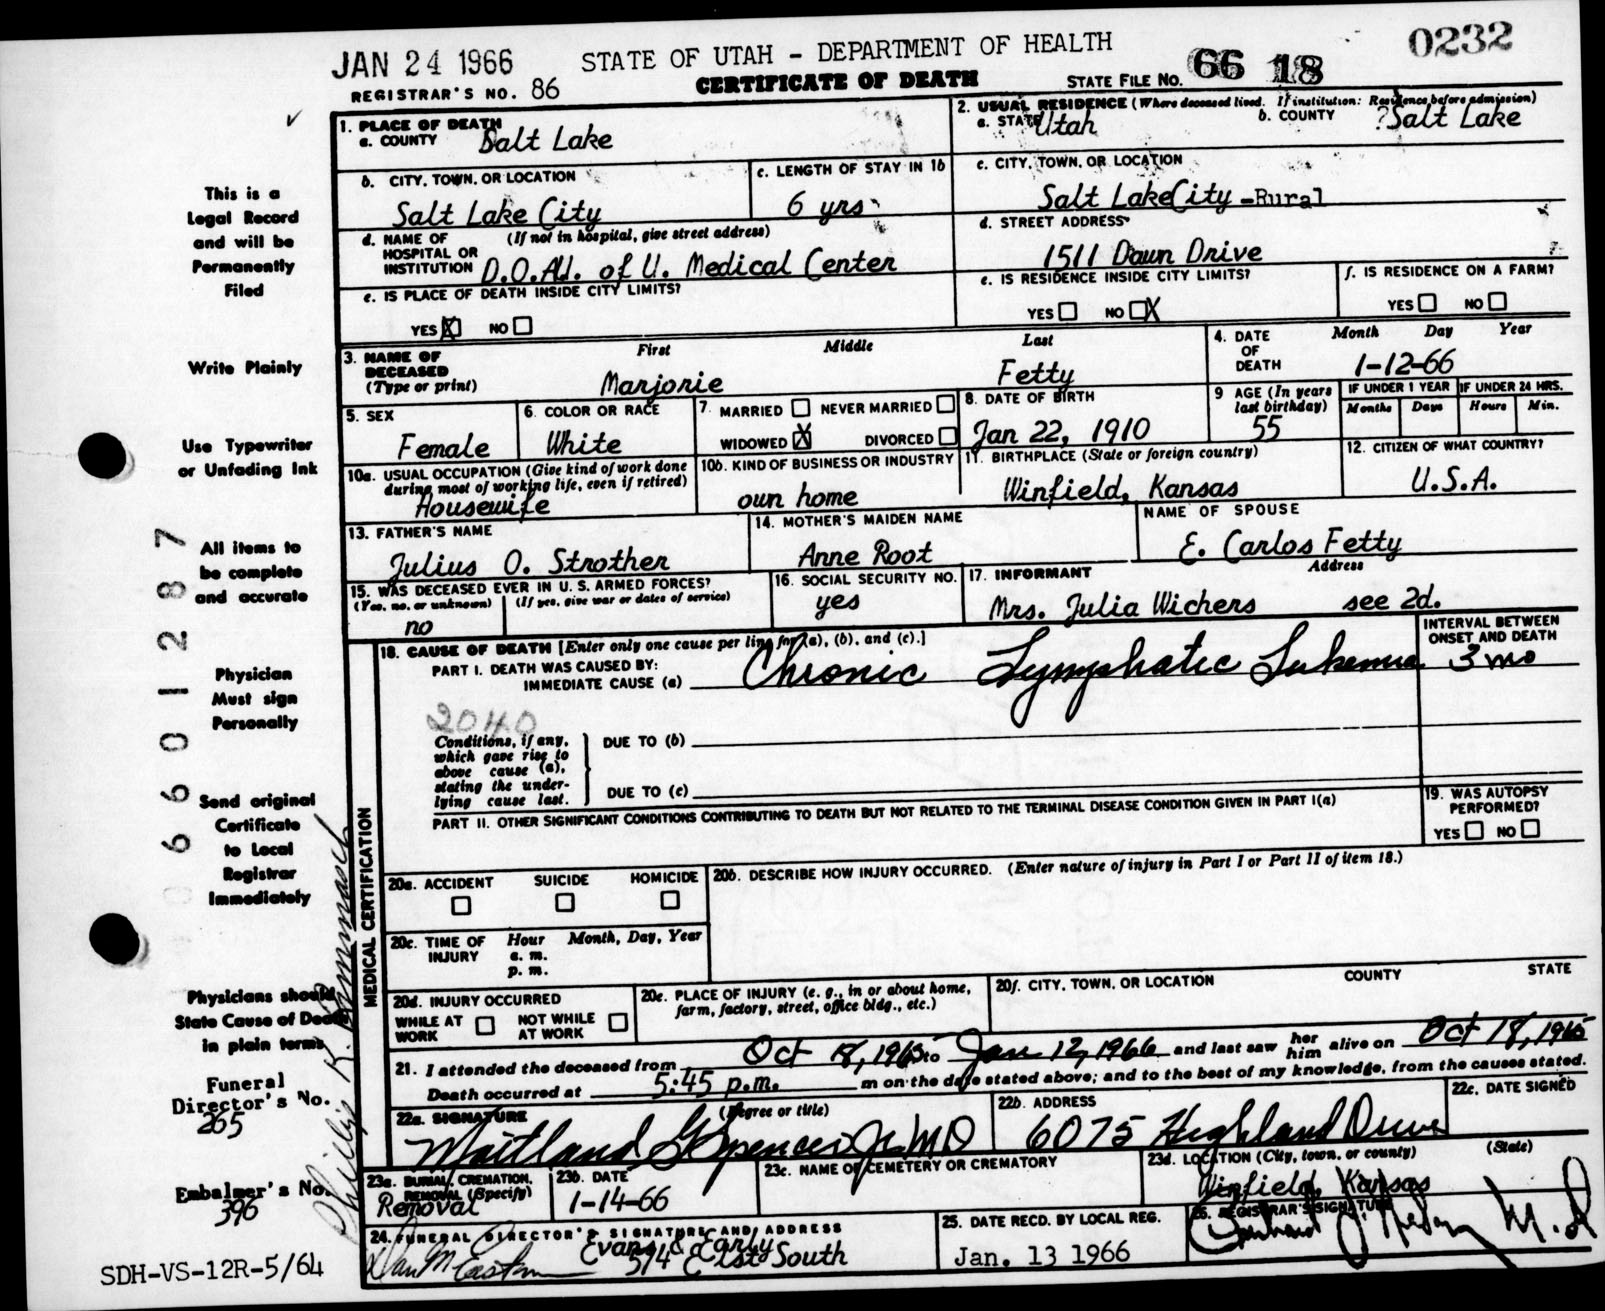 JAN 24 1966 STATE OF UTAH - DEPARTMENT OF HEALTH 0232
REGISTRAR'S NO. 86 CERTIFICATE OF DEATH STATE FILE NO. 66 18
1. PLACE OF DEATH
a. COUNTY Salt Lake
2. USUAL RESIDENCE (Where deceased lived. If institution: Residence before admission)
a. STATE Utah b. COUNTY ?Salt Lake
b. CITY, TOWN, OR LOCATION
Salt Lake City
c. LENGTH OF STAY IN 1b
6 yrs.
c. CITY, TOWN, OR LOCATION
Salt Lake City -Rural
d. NAME OF HOSPITAL OR INSTITUTION (If not in hospital, give street address)
D.O.Ad. of U. Medical Center
d. STREET ADDRESS
1511 Dawn Drive
e. IS PLACE OF DEATH INSIDE CITY LIMITS?
YES X NO
e. IS RESIDENCE INSIDE CITY LIMITS?
YES NO X
f. IS RESIDENCE ON A FARM?
YES NO
3. NAME OF DECEASED (Type or print)
First Middle Last
Marjorie Fetty
4. DATE OF DEATH
Month Day Year
1-12-66
5. SEX
Female
6. COLOR OR RACE
White
7. MARRIED NEVER MARRIED
WIDOWED X DIVORCED
8. DATE OF BIRTH
Jan 22, 1910
9 AGE (In years last birthday)
55
IF UNDER 1 YEAR IF UNDER 24 HRS.
Months Days Hours Min.
10a. USUAL OCCUPATION (Give kind of work done during most of working life, even if retired)
Housewife
10b. KIND OF BUSINESS OR INDUSTRY
own home
11. BIRTHPLACE (State or foreign country)
Winfield, Kansas
12. CITIZEN OF WHAT COUNTRY?
U.S.A.
13. FATHER'S NAME
Julius O. Strother
14. MOTHER'S MAIDEN NAME
Anne Root
NAME OF SPOUSE
E. Carlos Fetty
15. WAS DECEASED EVER IN U.S. ARMED FORCES?
(Yes, no, or unknown) (If yes, give war or dates of service)
no
16. SOCIAL SECURITY NO.
yes
17. INFORMANT Address
Mrs. Julia Wichers see 2d.
MEDICAL CERTIFICATION
18. CAUSE OF DEATH [Enter only one cause per line for (a), (b), and (c).]
INTERVAL BETWEEN ONSET AND DEATH
PART I. DEATH WAS CAUSED BY:
IMMEDIATE CAUSE (a) Chronic Lymphatic Lukemia 3 mo
2040
Conditions, if any, which gave rise to above cause (a), stating the underlying cause last.
DUE TO (b)
DUE TO (c)
PART II. OTHER SIGNIFICANT CONDITIONS CONTRIBUTING TO DEATH BUT NOT RELATED TO THE TERMINAL DISEASE CONDITION GIVEN IN PART I(a)
19. WAS AUTOPSY PERFORMED?
YES NO
20a. ACCIDENT SUICIDE HOMICIDE
20b. DESCRIBE HOW INJURY OCCURRED. (Enter nature of injury in Part I or Part II of item 18.)
20c. TIME OF INJURY Hour Month, Day, Year
a. m.
p. m.
20d. INJURY OCCURRED
WHILE AT WORK NOT WHILE AT WORK
20e. PLACE OF INJURY (e. g., in or about home, farm, factory, street, office bldg., etc.)
20f. CITY, TOWN, OR LOCATION COUNTY STATE
21. I attended the deceased from Oct 18, 1965 to Jan 12, 1966 and last saw her him alive on Oct 18, 1965
Death occurred at 5:45 p.m. m on the date stated above; and to the best of my knowledge, from the causes stated.
22a. SIGNATURE (Degree or title)
Maitland G Spencer Jr MD
22b. ADDRESS
6075 Highland Drive
22c. DATE SIGNED
23a. BURIAL, CREMATION, REMOVAL (Specify)
Removal
23b. DATE
1-14-66
23c. NAME OF CEMETERY OR CREMATORY
23d. LOCATION (City, town, or county) (State)
Winfield, Kansas
24. FUNERAL DIRECTOR'S SIGNATURE AND ADDRESS
Evans & Early
574 E 1st South
25. DATE RECD. BY LOCAL REG.
Jan. 13 1966
26. REGISTRAR'S SIGNATURE
M.D
This is a
Legal Record
and will be
Permanently
Filed
Write Plainly
Use Typewriter
or Unfading Ink
All items to
be complete
and accurate
Physician
Must sign
Personally
Send original
Certificate
to Local
Registrar
Immediately
Physicians should
State Cause of Death
in plain terms
Funeral
Director's No.
265
Embalmer's No.
396
SDH-VS-12R-5/64
0660 1287